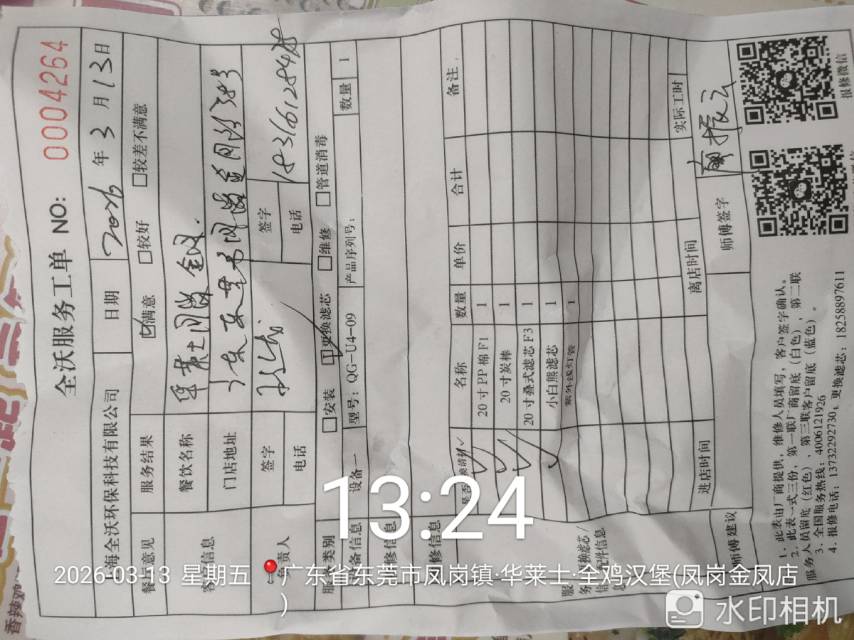 全沃服务工单 NO: 0004264
海全沃环保科技有限公司 日期 2026年3月13日
服务结果 ☑满意 □较好 □较差不满意
餐饮名称 华莱士凤岗金凤.
门店地址
签字 签字
电话 电话 18316128428
□安装 ☑更换滤芯 □维修 □管道消毒
设备一 型号: QG-U4-09 产品序列号: 数量 1
名称 数量 单价 合计 备注
✓ 20寸PP棉F1 1
✓ 20寸炭棒 1
✓ 20寸叠式滤芯F3 1
✓ 小白熊滤芯 1
紫外线灯管 1
进店时间 离店时间 实际工时
师傅建议 师傅签字
报修微信
1、此表由厂商提供,维修人员填写,客户签字确认。
2、此表一式三份,第一联厂商留底(白色),第二联
服务人员留底(红色),第三联客户留底(蓝色)。
3、全国服务热线:4006121926
4、报修电话:13732292730,更换滤芯:18258897611
13:24
2026-03-13 星期五 广东省东莞市凤岗镇·华莱士·全鸡汉堡(凤岗金凤店
)
水印相机
香辣鸡